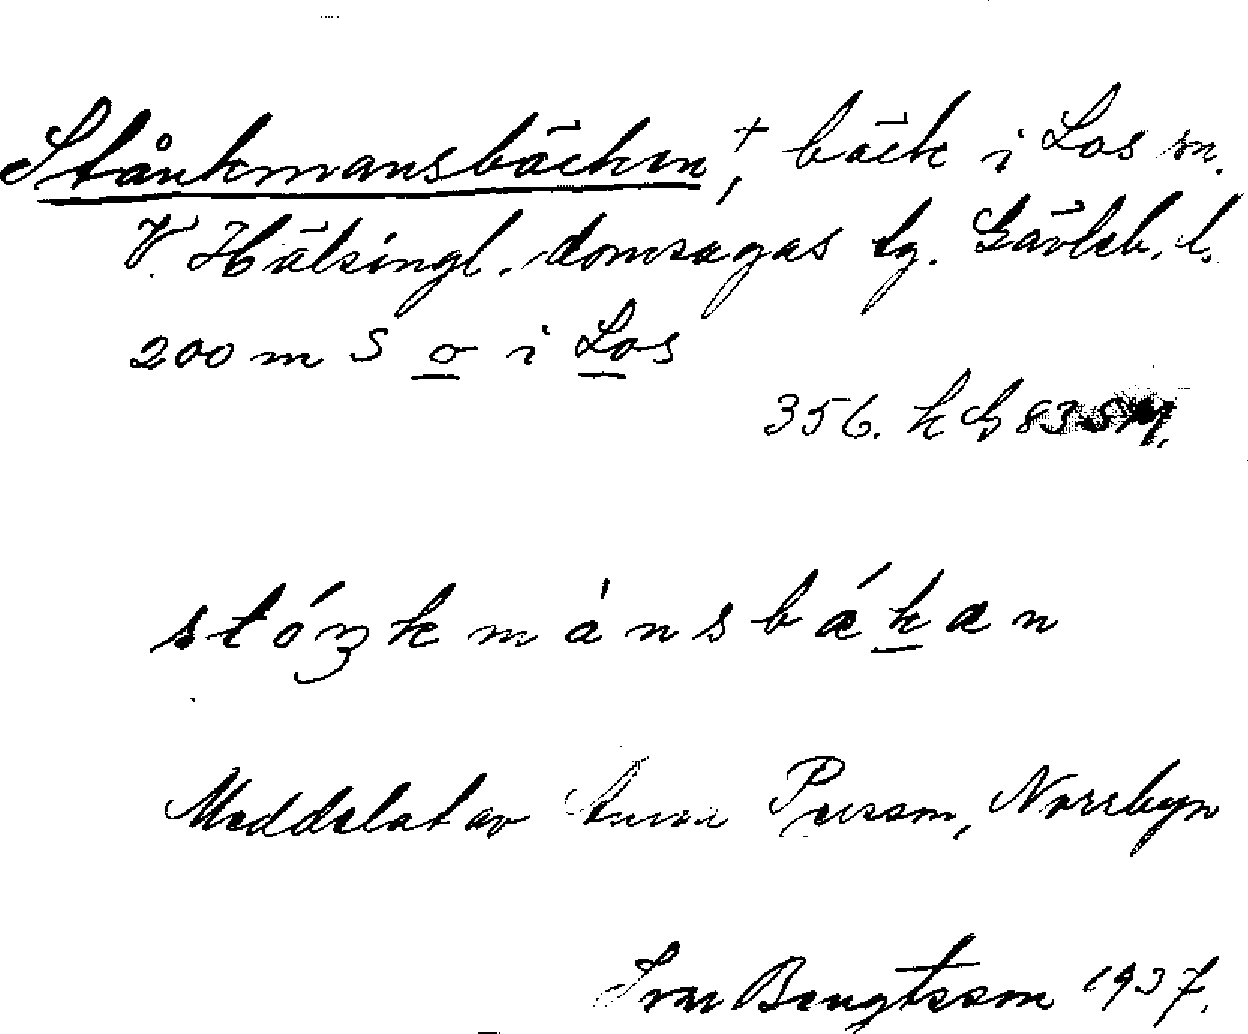 Stånkmansbäcken+, bäck i Los sn.
V. Hälsingl. domsagas tg. Gävleb. l.
200 m S o i Los
356. k
stóŋkmánsbákan
Meddelat av Anna Persson, Norrbyn
Ivar Bengtsson 1937.